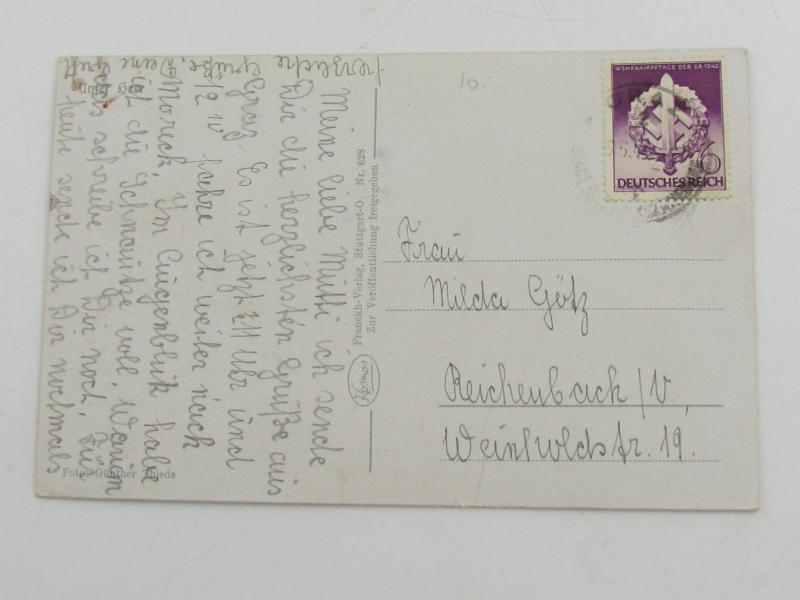 Meine liebe Mutti ich sende
Dir die herzlichsten Grüße aus
Graz. Es ist jetzt ¾11 Uhr und
½12 fahre ich weiter nach
Mureck. Im Augenblick habe
ich die Schnautze voll. Warum
das schreibe ich Dir noch. Für
heute sende ich Dir nochmals
herzliche
Grüße.
Deine
Unser Heer
Foto: Günther Thiede
Franckh-Verlag, Stuttgart-O. Nr. 628
Zur Veröffentlichung freigegeben
Kosmos
10.-
WEHRKAMPFTAGE DER SA 1942
6
DEUTSCHES REICH
GRAZ
Frau
Milda Götz
Reichenbach / V.
Weinholdstr. 19.